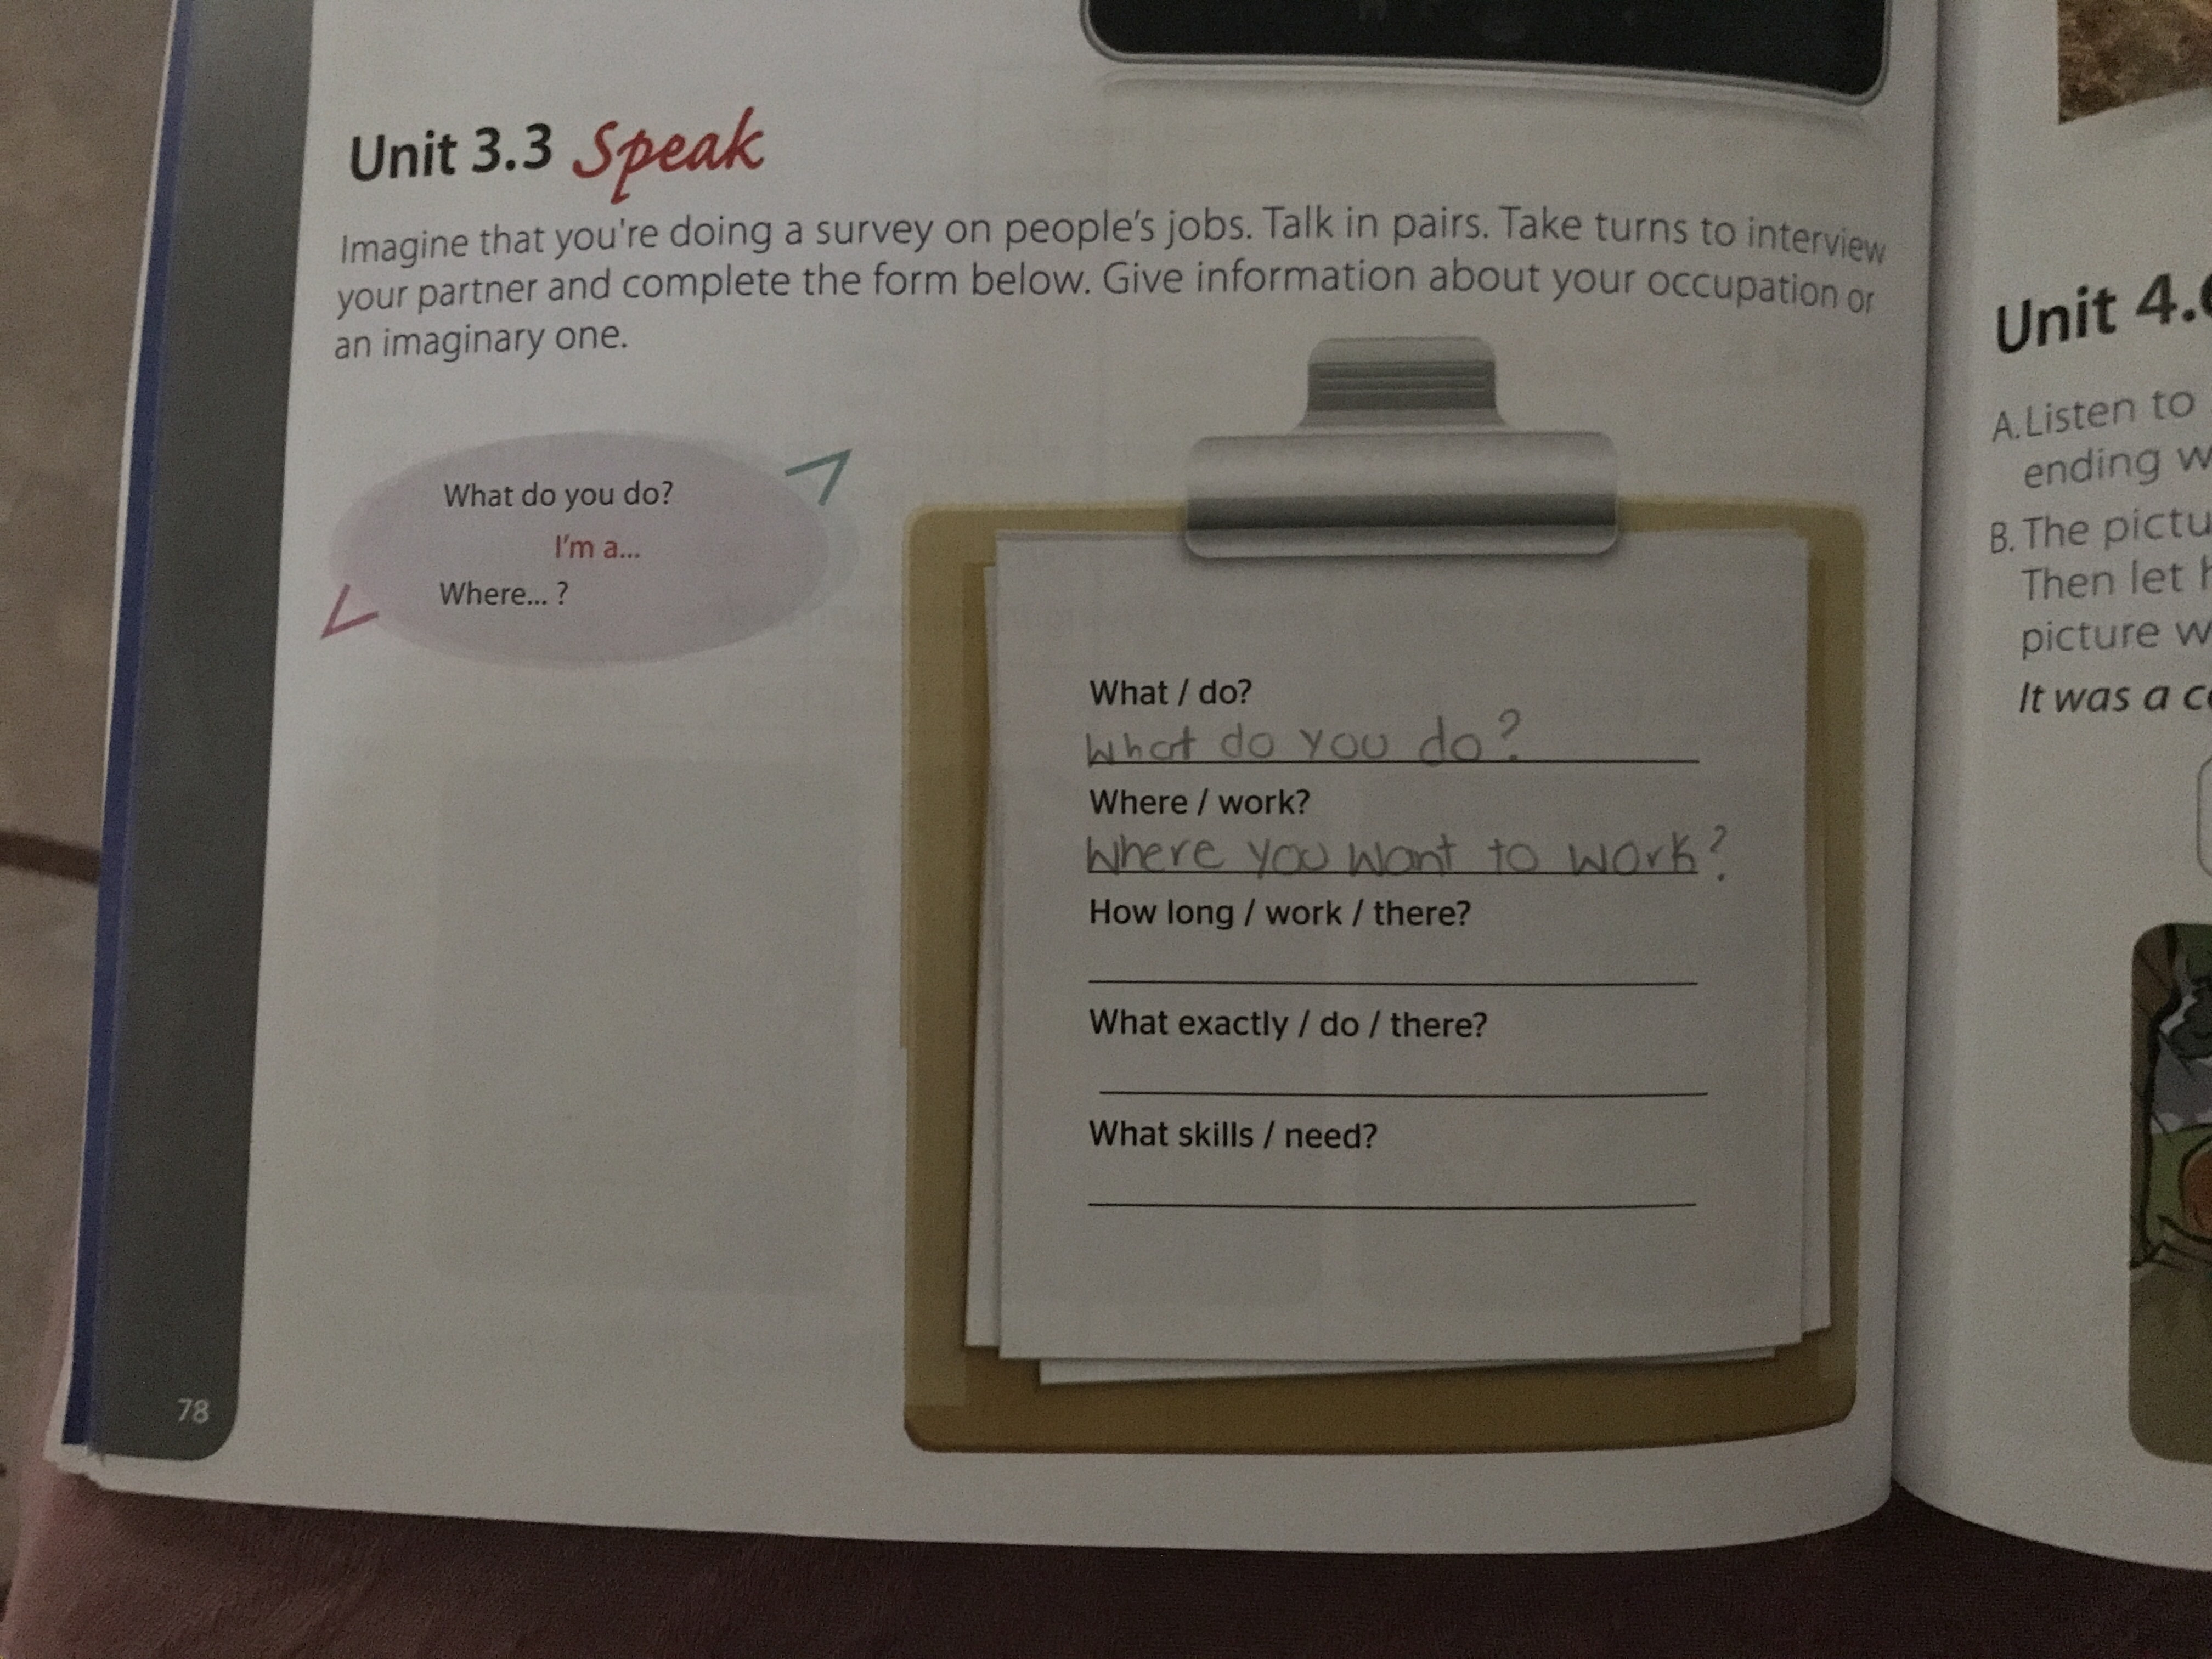 Unit 3.3 Speak
Imagine that you're doing a survey on people's jobs. Talk in pairs. Take turns to interview
your partner and complete the form below. Give information about your occupation or
an imaginary one.
What do you do?
I'm a...
Where... ?
What / do?
What do you do?
Where / work?
Where you want to work?
How long / work / there?
What exactly / do / there?
What skills / need?
78
Unit 4.
A. Listen to
ending
B. The
Then let
picture
It was a